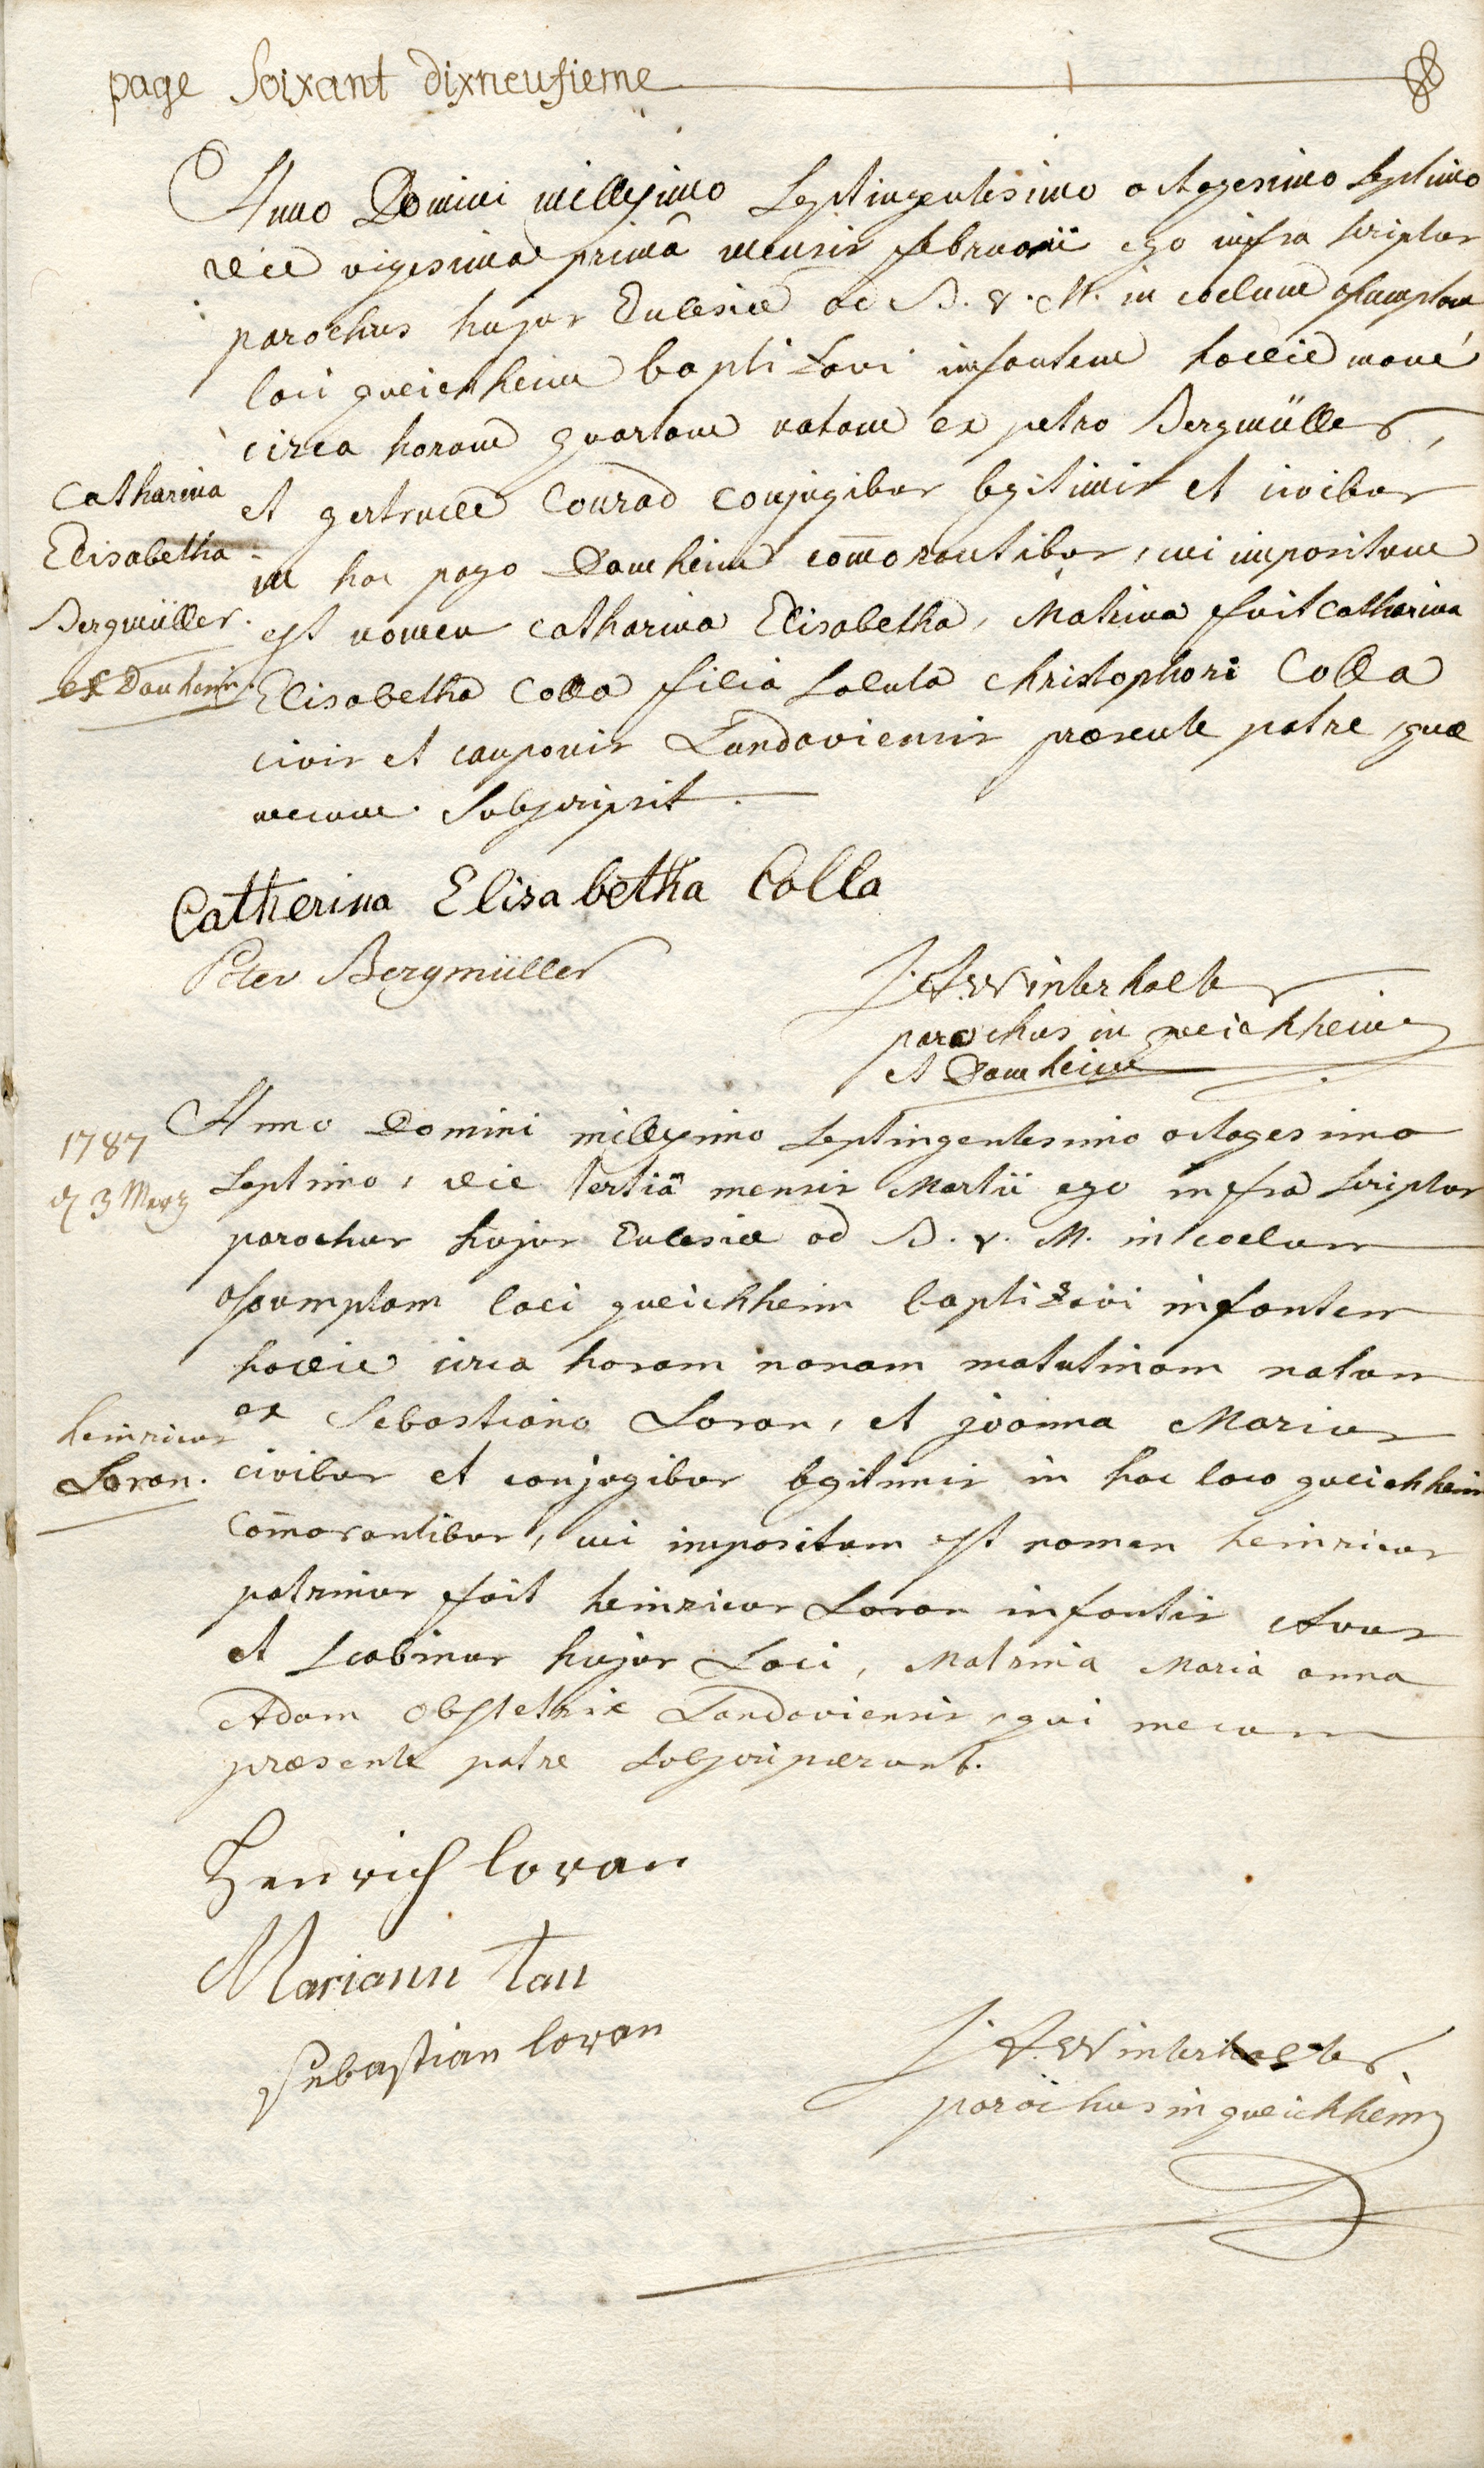 page Soixant dixneufieme
Anno Domini millesimo Septingentesimo octogesimo Septimo
die vigesima primâ mensis februarii ego infra scriptus
parochus hujus Ecclesiæ ad B. V. M. in coelum assumptam
loci queichheim baptizavi infantem hodie mane
circa horam quartam natam ex petro Bergmüller,
et gertrude Conrad conjugibus legitimis et civibus
in hoc pago Damheim com̄orantibus, cui impositum
est nomen catharina Elisabetha, Matrina fuit Catharina
Elisabetha Colla filia soluta christophori Colla
civis et cauponis Landaviensis præsente patre quæ
mecum subscripsit.
Catharina
Elisabetha
Bergmüller.
ex Damheim.
Catherina Elisabetha Colla
Peter Bergmüller
J. A. Winterhalter
parochus in queichheim
et Damheim
1787
d 3 Merz
Anno Domini millesimo Septingentesimo octogesimo
Septimo, die tertiâ mensis Martii ego infra scriptus
parochus hujus Ecclesiæ ad B. V. M. in coelum
assumptam loci queichheim baptizavi infantem
hodie circa horam nonam matutinam natum
ex Sebastiano Loran, et joanna Marius
civibus et conjugibus legitimis in hoc loco queichheim
com̄orantibus, cui impositum est nomen heinricus
patrinus fuit heinricus Loran infantis Avus
et Scabinus hujus Loci, Matrina Maria anna
Adam obstetrix Landaviensis, qui mecum
præsente patre subscripserunt.
heinricus
Loran.
Henrich loran
Mariann tan
Sebastian loran
J. A. Winterhalter
parochus in queichheim